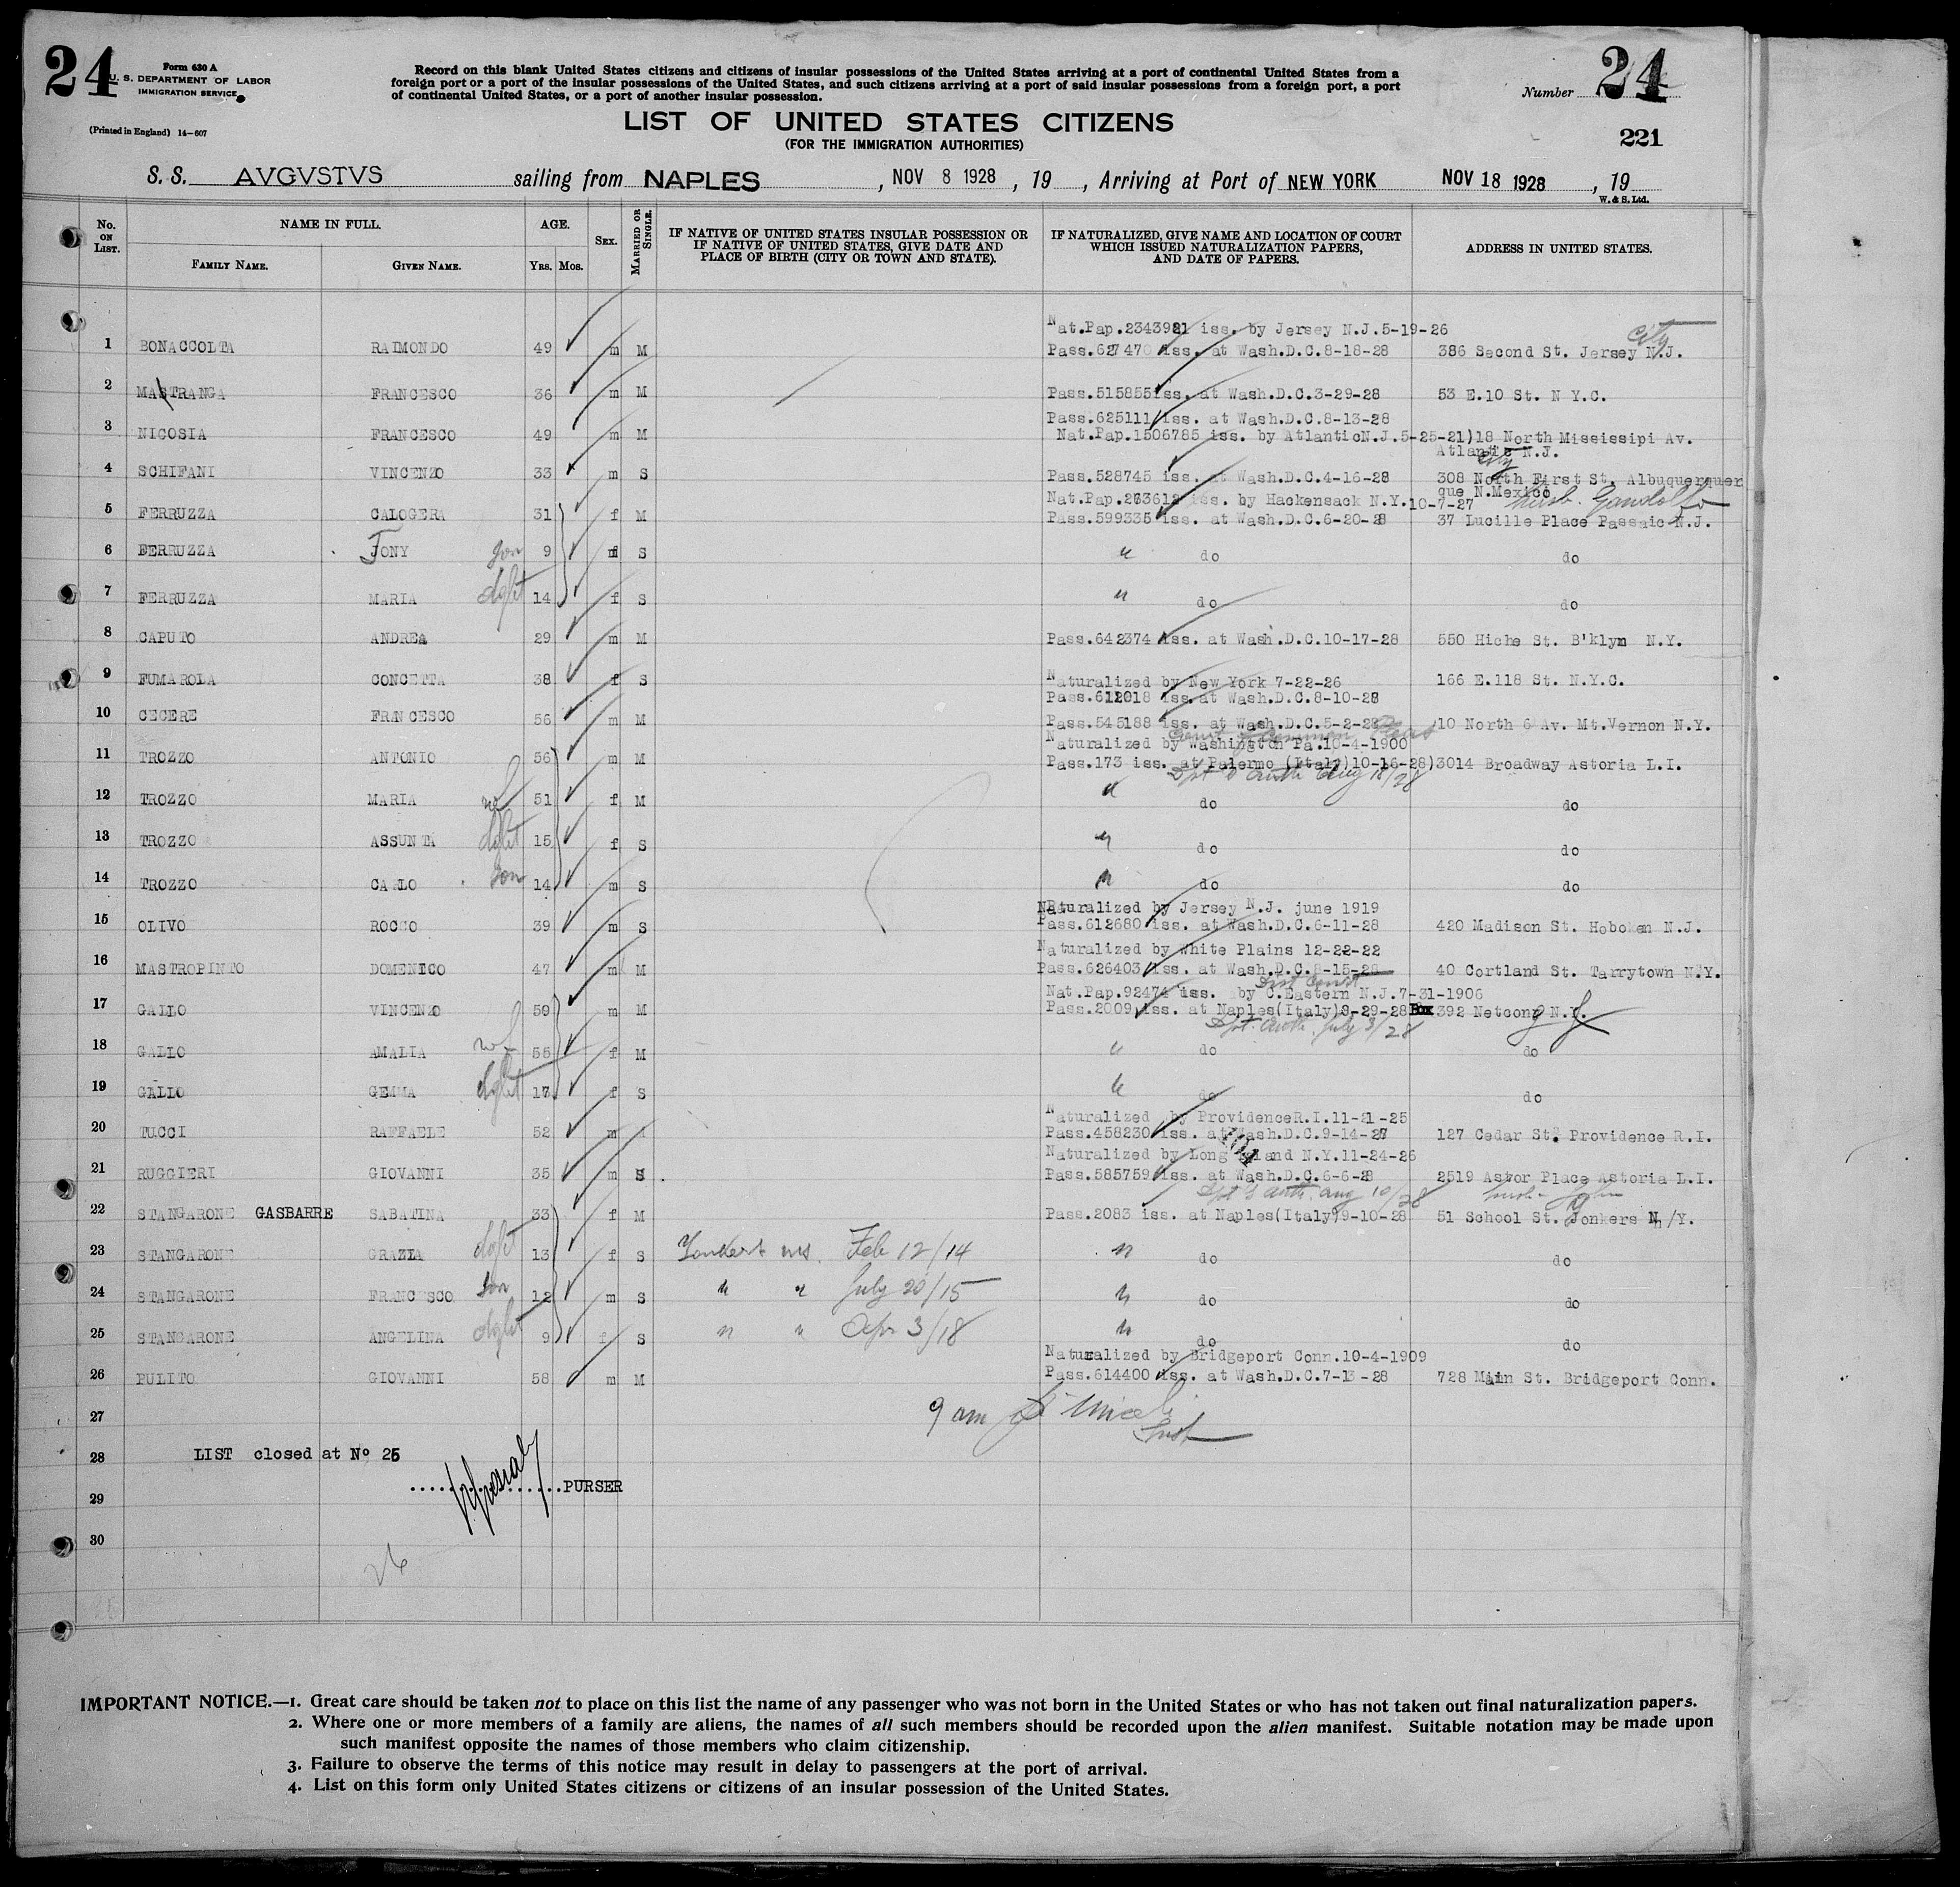 24
Form 630 A
U. S. DEPARTMENT OF LABOR
IMMIGRATION SERVICE
(Printed in England) 14—607
Record on this blank United States citizens and citizens of insular possessions of the United States arriving at a port of continental United States from a
foreign port or a port of the insular possessions of the United States, and such citizens arriving at a port of said insular possessions from a foreign port, a port
of continental United States, or a port of another insular possession.
Number 24
LIST OF UNITED STATES CITIZENS
(FOR THE IMMIGRATION AUTHORITIES)
221
S. S. AVGVSTVS sailing from NAPLES, NOV 8 1928, 19, Arriving at Port of NEW YORK NOV 18 1928, 19
W. & S. Ltd.
No. ON LIST. NAME IN FULL. AGE. SEX. MARRIED OR SINGLE. IF NATIVE OF UNITED STATES INSULAR POSSESSION OR IF NATIVE OF UNITED STATES, GIVE DATE AND PLACE OF BIRTH (CITY OR TOWN AND STATE). IF NATURALIZED, GIVE NAME AND LOCATION OF COURT WHICH ISSUED NATURALIZATION PAPERS, AND DATE OF PAPERS. ADDRESS IN UNITED STATES.
FAMILY NAME. GIVEN NAME. YRS. MOS.
Nat.Pap.2343981 iss. by Jersey N.J.5-19-26 City
1 BONACCOLTA RAIMONDO 49 m M Pass.627470 iss. at Wash.D.C.8-18-28 386 Second St. Jersey N.J.
2 MASTRANGA FRANCESCO 36 m M Pass.515855iss. at Wash.D.C.3-29-28 53 E.10 St. N Y.C.
Pass.625111 iss. at Wash.D.C.8-13-28
3 NICOSIA FRANCESCO 49 m M Nat.Pap.1506785 iss. by AtlanticN.J.5-25-21)18 North Mississipi Av.
Atlantic N.J.
City
4 SCHIFANI VINCENZO 33 m S Pass.528745 iss. at Wash.D.C.4-16-28 308 North First St. Albuquerquer
que N.Mexico
Nat.Pap.263612 iss. by Hackensack N.Y.10-7-27
5 FERRUZZA CALOGERA 31 f M Pass.599335 iss. at Wash.D.C.6-20-28 37 Lucille Place Passaic N.J.
6 FERRUZZA TONY son 9 m S " do do
7 FERRUZZA MARIA dght 14 f S " do do
8 CAPUTO ANDREa 29 m M Pass.642374 iss. at Wash.D.C.10-17-28 550 Hiche St. B'klyn N.Y.
9 FUMAROLA CONCETTA 38 f S Naturalized by New York 7-22-26 166 E.118 St. N.Y.C.
Pass.612018 iss.at Wash.D.C.8-10-28
10 CECERE FRANCESCO 56 m M Pass.545188 iss. at Wash.D.C.5-2-28 10 North 6 Av. Mt.Vernon N.Y.
Court of Common Pleas
Naturalized by Washington Pa.10-4-1900
11 TROZZO ANTONIO 56 m M Pass.173 iss. at Palermo (Italy)10-16-28)3014 Broadway Astoria L.I.
Dpt's auth Aug 18/28
12 TROZZO MARIA wf 51 f M " do do
13 TROZZO ASSUNTA dght 15 f S " do do
14 TROZZO CARLO son 14 m S " do do
Naturalized by Jersey N.J. june 1919
15 OLIVO ROCCO 39 m S Pass.612680 iss. at Wash.D.C.6-11-28 420 Madison St. Hoboken N.J.
Naturalized by White Plains 12-22-22
16 MASTROPINTO DOMENICO 47 m M Pass.626403 iss. at Wash.D.C.8-15-28 40 Cortland St. Tarrytown N.Y.
Dist Court
Nat.Pap.92474 iss. by C.Eastern N.J.7-31-1906
17 GALLO VINCENZO 59 m M Pass.2009 iss. at Naples(Italy)8-29-28 Box 392 Netcong N.Y. J
Dpt. auth. July 3/28
18 GALLO AMALIA wf 55 f M " do do
19 GALLO GEMMA dght 17 f S " do do
Naturalized by ProvidenceR.I.11-21-25
20 TUCCI RAFFAELE 52 m M Pass.458230 iss. at Wash.D.C.9-14-27 127 Cedar St. Providence R.I.
Naturalized by Long Island N.Y.11-24-26
21 RUGGIERI GIOVANNI 35 m S Pass.585759 iss. at Wash.D.C.6-6-28 2519 Astor Place Astoria L.I.
Dpt's auth. aug 10/28
22 STANGARONE GASBARRE SABATINA 33 f M Pass.2083 iss. at Naples(Italy)9-10-28 51 School St. Yonkers N/Y.
23 STANGARONE GRAZIA dght 13 f S Yonkers NY. Feb 12/14 " do do
24 STANGARONE FRANCESCO son 12 m S " " July 20/15 " do do
25 STANGARONE ANGELINA dght 9 f S " " Apr 3/18 " do do
Naturalized by Bridgeport Conn.10-4-1909
26 PULITO GIOVANNI 58 m M Pass.614400 iss. at Wash.D.C.7-13-28 728 Main St. Bridgeport Conn.
27 9 am
28 LIST closed at No 26
PURSER
29
30
26
IMPORTANT NOTICE.—1. Great care should be taken not to place on this list the name of any passenger who was not born in the United States or who has not taken out final naturalization papers.
2. Where one or more members of a family are aliens, the names of all such members should be recorded upon the alien manifest. Suitable notation may be made upon
such manifest opposite the names of those members who claim citizenship.
3. Failure to observe the terms of this notice may result in delay to passengers at the port of arrival.
4. List on this form only United States citizens or citizens of an insular possession of the United States.